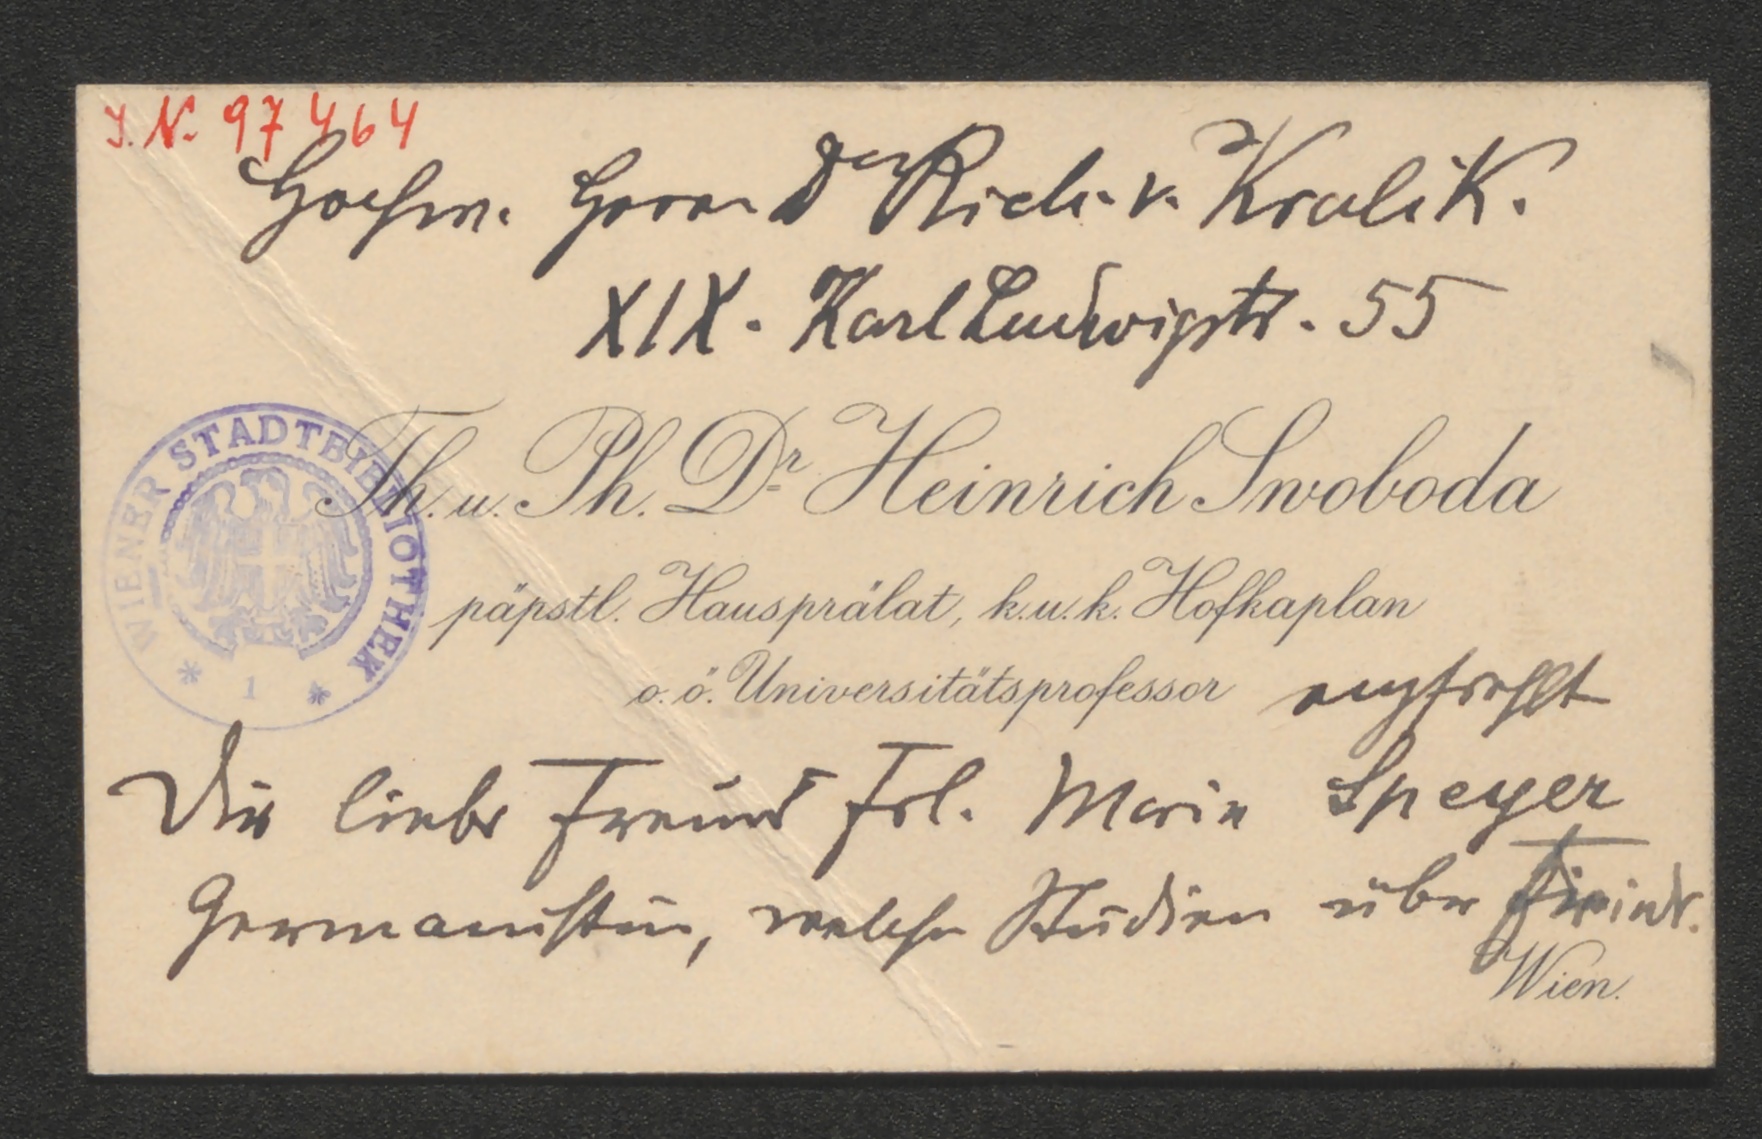 I. N. 97464
Hochw. Herrn Dr Rich. v. Kralik.
XIX. Karl Ludwigstr. 55
WIENER STADTBIBLIOTHEK
* 1 *
Th. u. Ph. Dr. Heinrich Swoboda
päpstl. Hausprälat, k. u. k. Hofkaplan
o. ö. Universitätsprofessor empfiehlt
Dir lieber Freund Frl. Marie Speyer
Germanistin, welche Studien über
Wien.